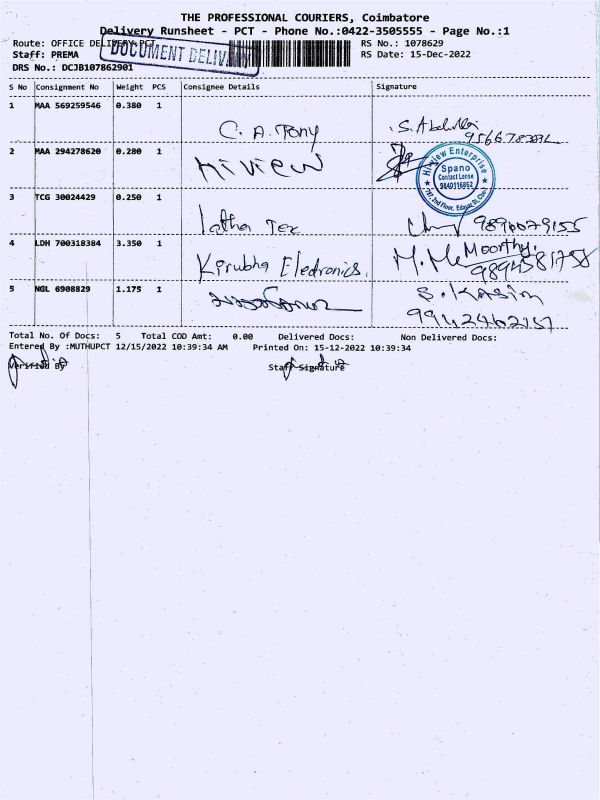 THE PROFESSIONAL COURIERS, Coimbatore
Delivery Runsheet - PCT - Phone No.:0422-3505555 - Page No.:1
Route: OFFICE DELIVERY PCT
RS No.: 1078629
DOCUMENT DELIV
Staff: PREMA
RS Date: 15-Dec-2022
DRS No.: DCJB107862901
S No Consignment No Weight PCS Consignee Details Signature
1 MAA 569259546 0.380 1
C. A. Tony S. Abdulla
2 MAA 294278620 0.280 1
Hiview
Hi-view Enterprise
Spano
Contact Lense
9840116862
3 TCG 30024429 0.250 1
latha Tex 9896079155
4 LDH 700318384 3.350 1
Kirubha Electronics. M. Moorthy.
9894581758
5 NGL 6908829 1.175 1
S. Kasim
9942462157
Total No. Of Docs: 5 Total COD Amt: 0.00 Delivered Docs: Non Delivered Docs:
Entered By :MUTHUPCT 12/15/2022 10:39:34 AM Printed On: 15-12-2022 10:39:34
Verified By Staff Signature